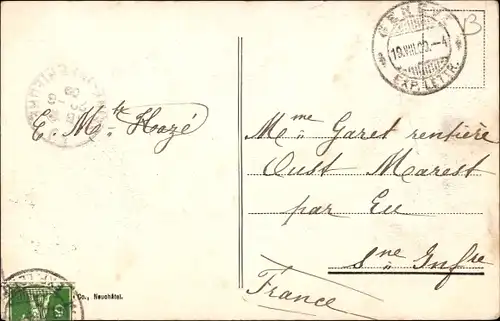 GENEVE
19.VIII.09.-4
EXP. LETTR.
B
E. Mte Hazé
Mme Garet rentière
Oust Marest
par Eu
Sne Infre
France
Co., Neuchâtel.
5